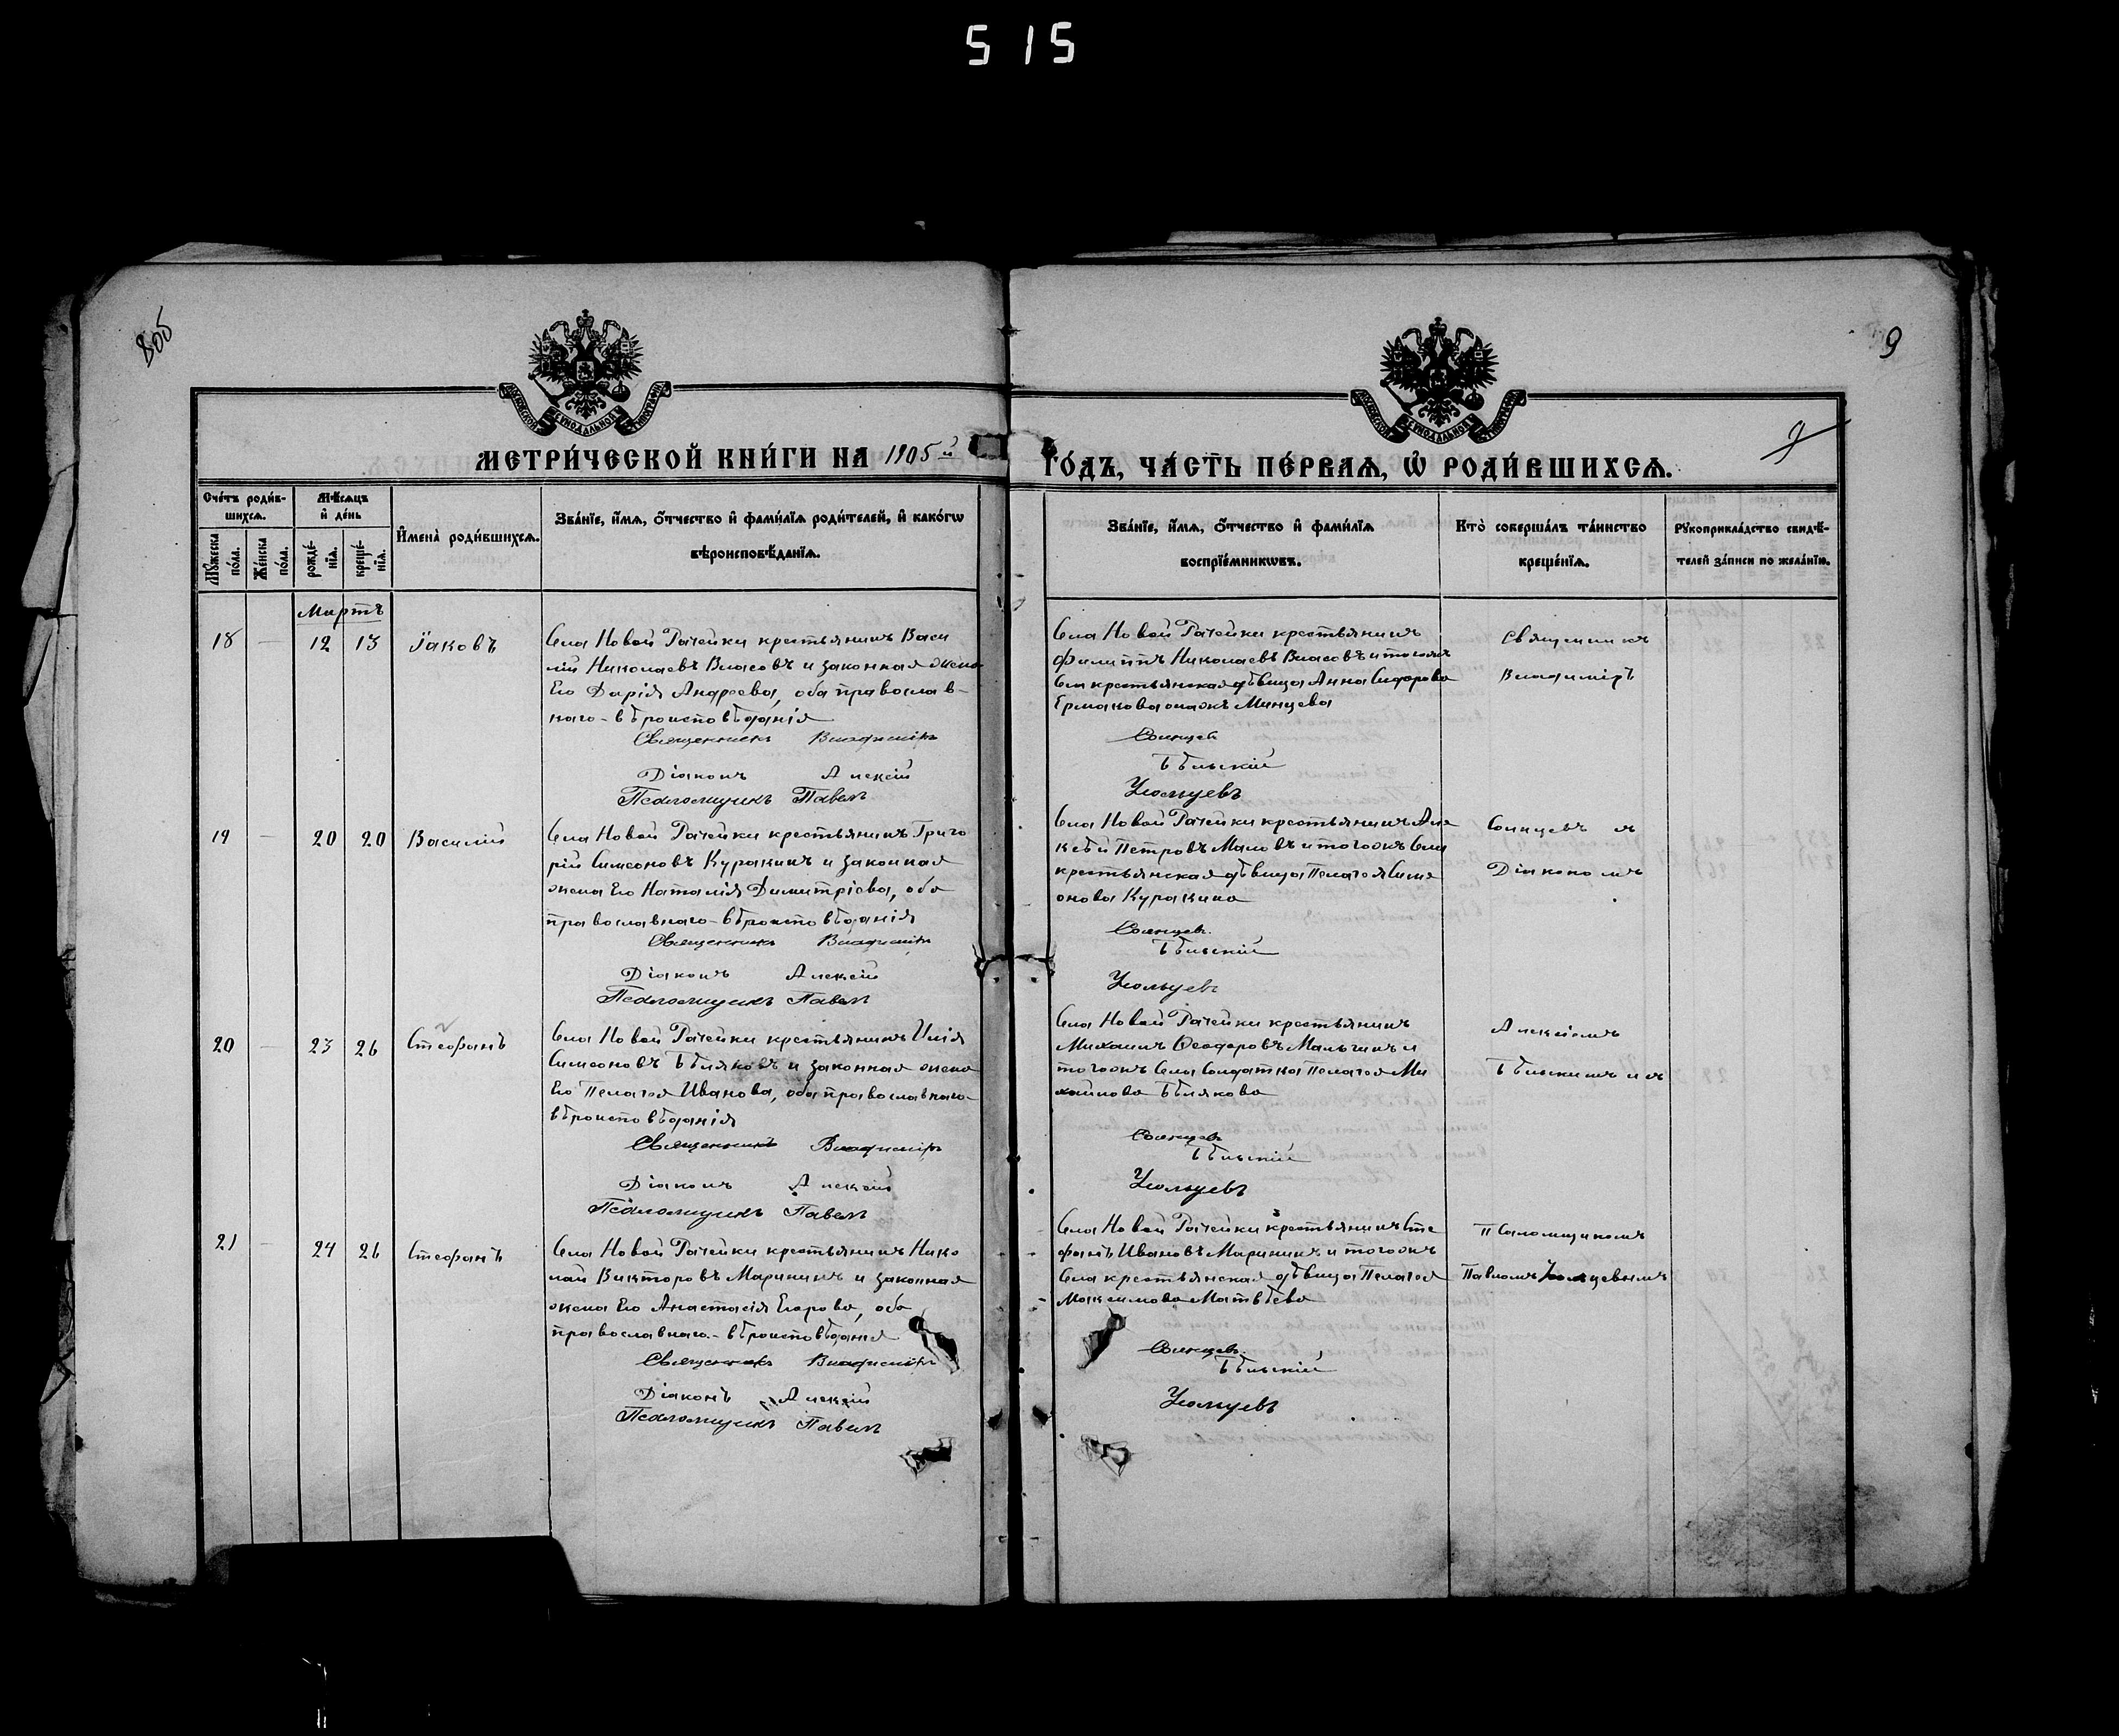 515
805
9
9
МОСКОВСКОЙ СѴНОДАЛЬНОЙ ТИПОГРАФІИ
МОСКОВСКОЙ СѴНОДАЛЬНОЙ ТИПОГРАФІИ
МЕТРИ́ЧЕСКОЙ КНИ́ГИ НА 1905й
ГО́ДЪ, ЧА́СТЬ ПЕ́РВАѦ, Ѡ҆ РОДИ́ВШИХСѦ.
Сче́тъ роди́в-
шихсѧ.
Мѣ́сѧцъ
и҆ де́нь
Мꙋ́жеска
по́ла.
Же́нска
по́ла.
рожде́-
нїѧ.
креще́-
нїѧ.
И҆мена̀ роди́вшихсѧ.
Зва́нїе, и҆́мѧ, ѻ҆́тчество и҆ фами́лїѧ роди́телей, и҆ како́гѡ
вѣроисповѣ́данїѧ.
Зва́нїе, и҆́мѧ, ѻ҆́тчество и҆ фами́лїѧ
воспрїе́мникѡвъ.
Кто̀ соверша́лъ та́инство
креще́нїѧ.
Рꙋкоприкла́дство свидѣ́-
телей за́писи по жела́нїю.
Мартъ
18 — 12 13 Іаковъ
Села Новой Рачейки крестьянинъ Васи
лій Николаевъ Власовъ и законная жена
Его Дарія Андреева, оба православ-
наго-вѣроисповѣданія
Священникъ Владиміръ
Діаконъ Алексій
Псаломщикъ Павелъ
Села Новой Рачейки крестьянинъ
Филиппъ Николаевъ Власовъ и тогожъ
Села крестьянская дѣвица Анна Сидорова
Ермакова онажъ Минцева
Солнцевъ
Бѣльскій
Усольцевъ
Священникъ
Владиміръ
19 — 20 20 Василій
Села Новой Рачейки крестьянинъ Григо
рій Симеоновъ Куракинъ и законная
жена Его Наталія Димитріева, оба
православнаго-вѣроисповѣданія
Священникъ Владиміръ
Діаконъ Алексій
Псаломщикъ Павелъ
Села Новой Рачейки крестьянинъ Але
ксѣй Петровъ Маловъ и тогожъ Села
крестьянская дѣвица Пелагея Симе
онова Куракина
Солнцевъ.
Бѣльскій
Усольцевъ
Солнцевъ съ
Діакономъ
20 — 23 26 Стефанъ
Села Новой Рачейки крестьянинъ Илія
Симеоновъ Бѣляковъ и законная жена
Его Пелагея Иванова, оба православнаго-
вѣроисповѣданія
Священникъ Владиміръ
Діаконъ Алексій
Псаломщикъ Павелъ
Села Новой Рачейки крестьянинъ
Михаилъ Ѳеодоровъ Малыгинъ и
тогожъ Села Солдатка Пелагея Ми
хайлова Бѣлякова
Солнцевъ
Бѣльскій
Усольцевъ
Алексіемъ
Бѣльскимъ и съ
21 — 24 26 Стефанъ
Села Новой Рачейки крестьянинъ Нико
лай Викторовъ Марининъ и законная
жена Его Анастасія Егорова, оба
православнаго-вѣроисповѣданія
Священникъ Владиміръ
Діаконъ Алексій
Псаломщикъ Павелъ
Села Новой Рачейки крестьянинъ Сте
фанъ Ивановъ Марининъ и тогожъ
Села крестьянская дѣвица Пелагея
Максимова Матвѣева
Солнцевъ.
Бѣльскій
Усольцевъ
Псаломщикомъ
Павломъ Усольцевымъ